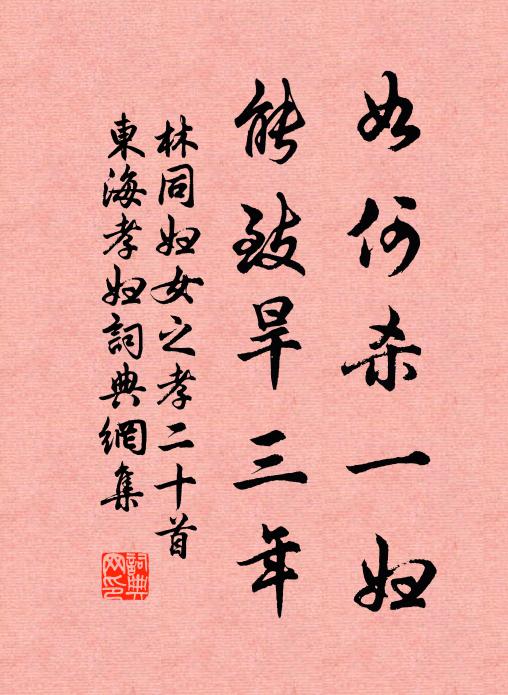 如何杀一妇
能致旱三年
林同妇女之孝二十首
東海孝妇詞典網集
詞典网印